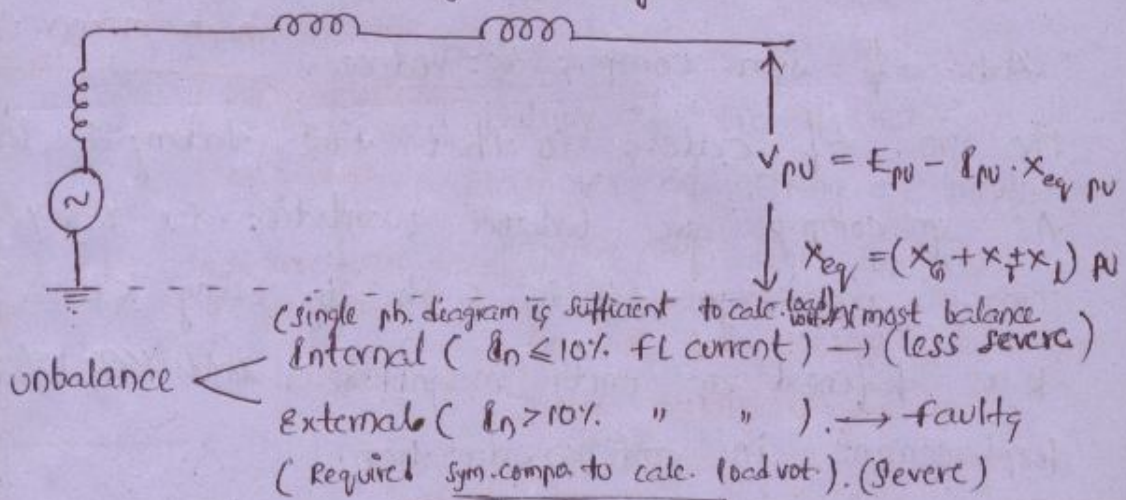 ~
V pu = E pu - I pu . x eq pu
x eq = (x G + x T + x L) pu
(single ph. diagram is sufficient to calc. load volt.) (most balance
Internal (In ≤ 10% FL current) → (less severe)
unbalance <
External (In > 10% " " ). → faulty
(Required sym.compo. to calc. load vot.). (Severe)